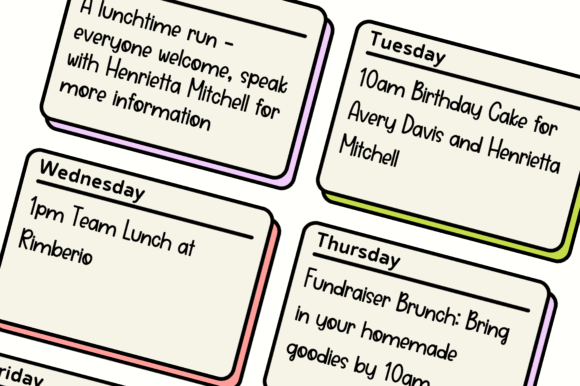 A lunchtime run -
everyone welcome, speak
with Henrietta Mitchell for
more information
Tuesday
10am Birthday Cake for
Avery Davis and Henrietta
Mitchell
Wednesday
1pm Team Lunch at
Rimberio
Thursday
Fundraiser Brunch: Bring
in your homemade
goodies by 10am